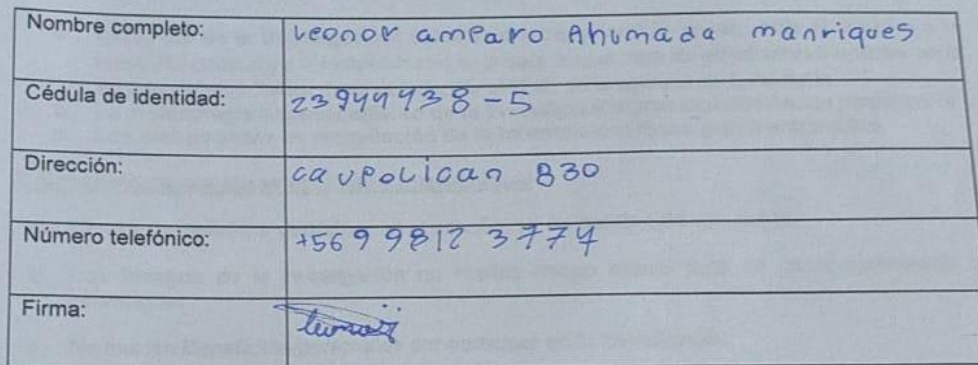 Nombre completo: Leonor amparo Ahumada manriques
Cédula de identidad: 23944938-5
Dirección: caupolican 830
Número telefónico: +569 9812 3774
Firma: